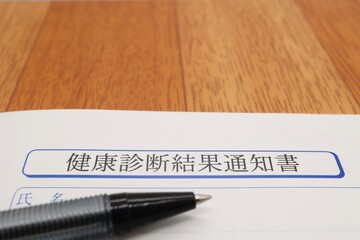 健康診断結果通知書
氏 名